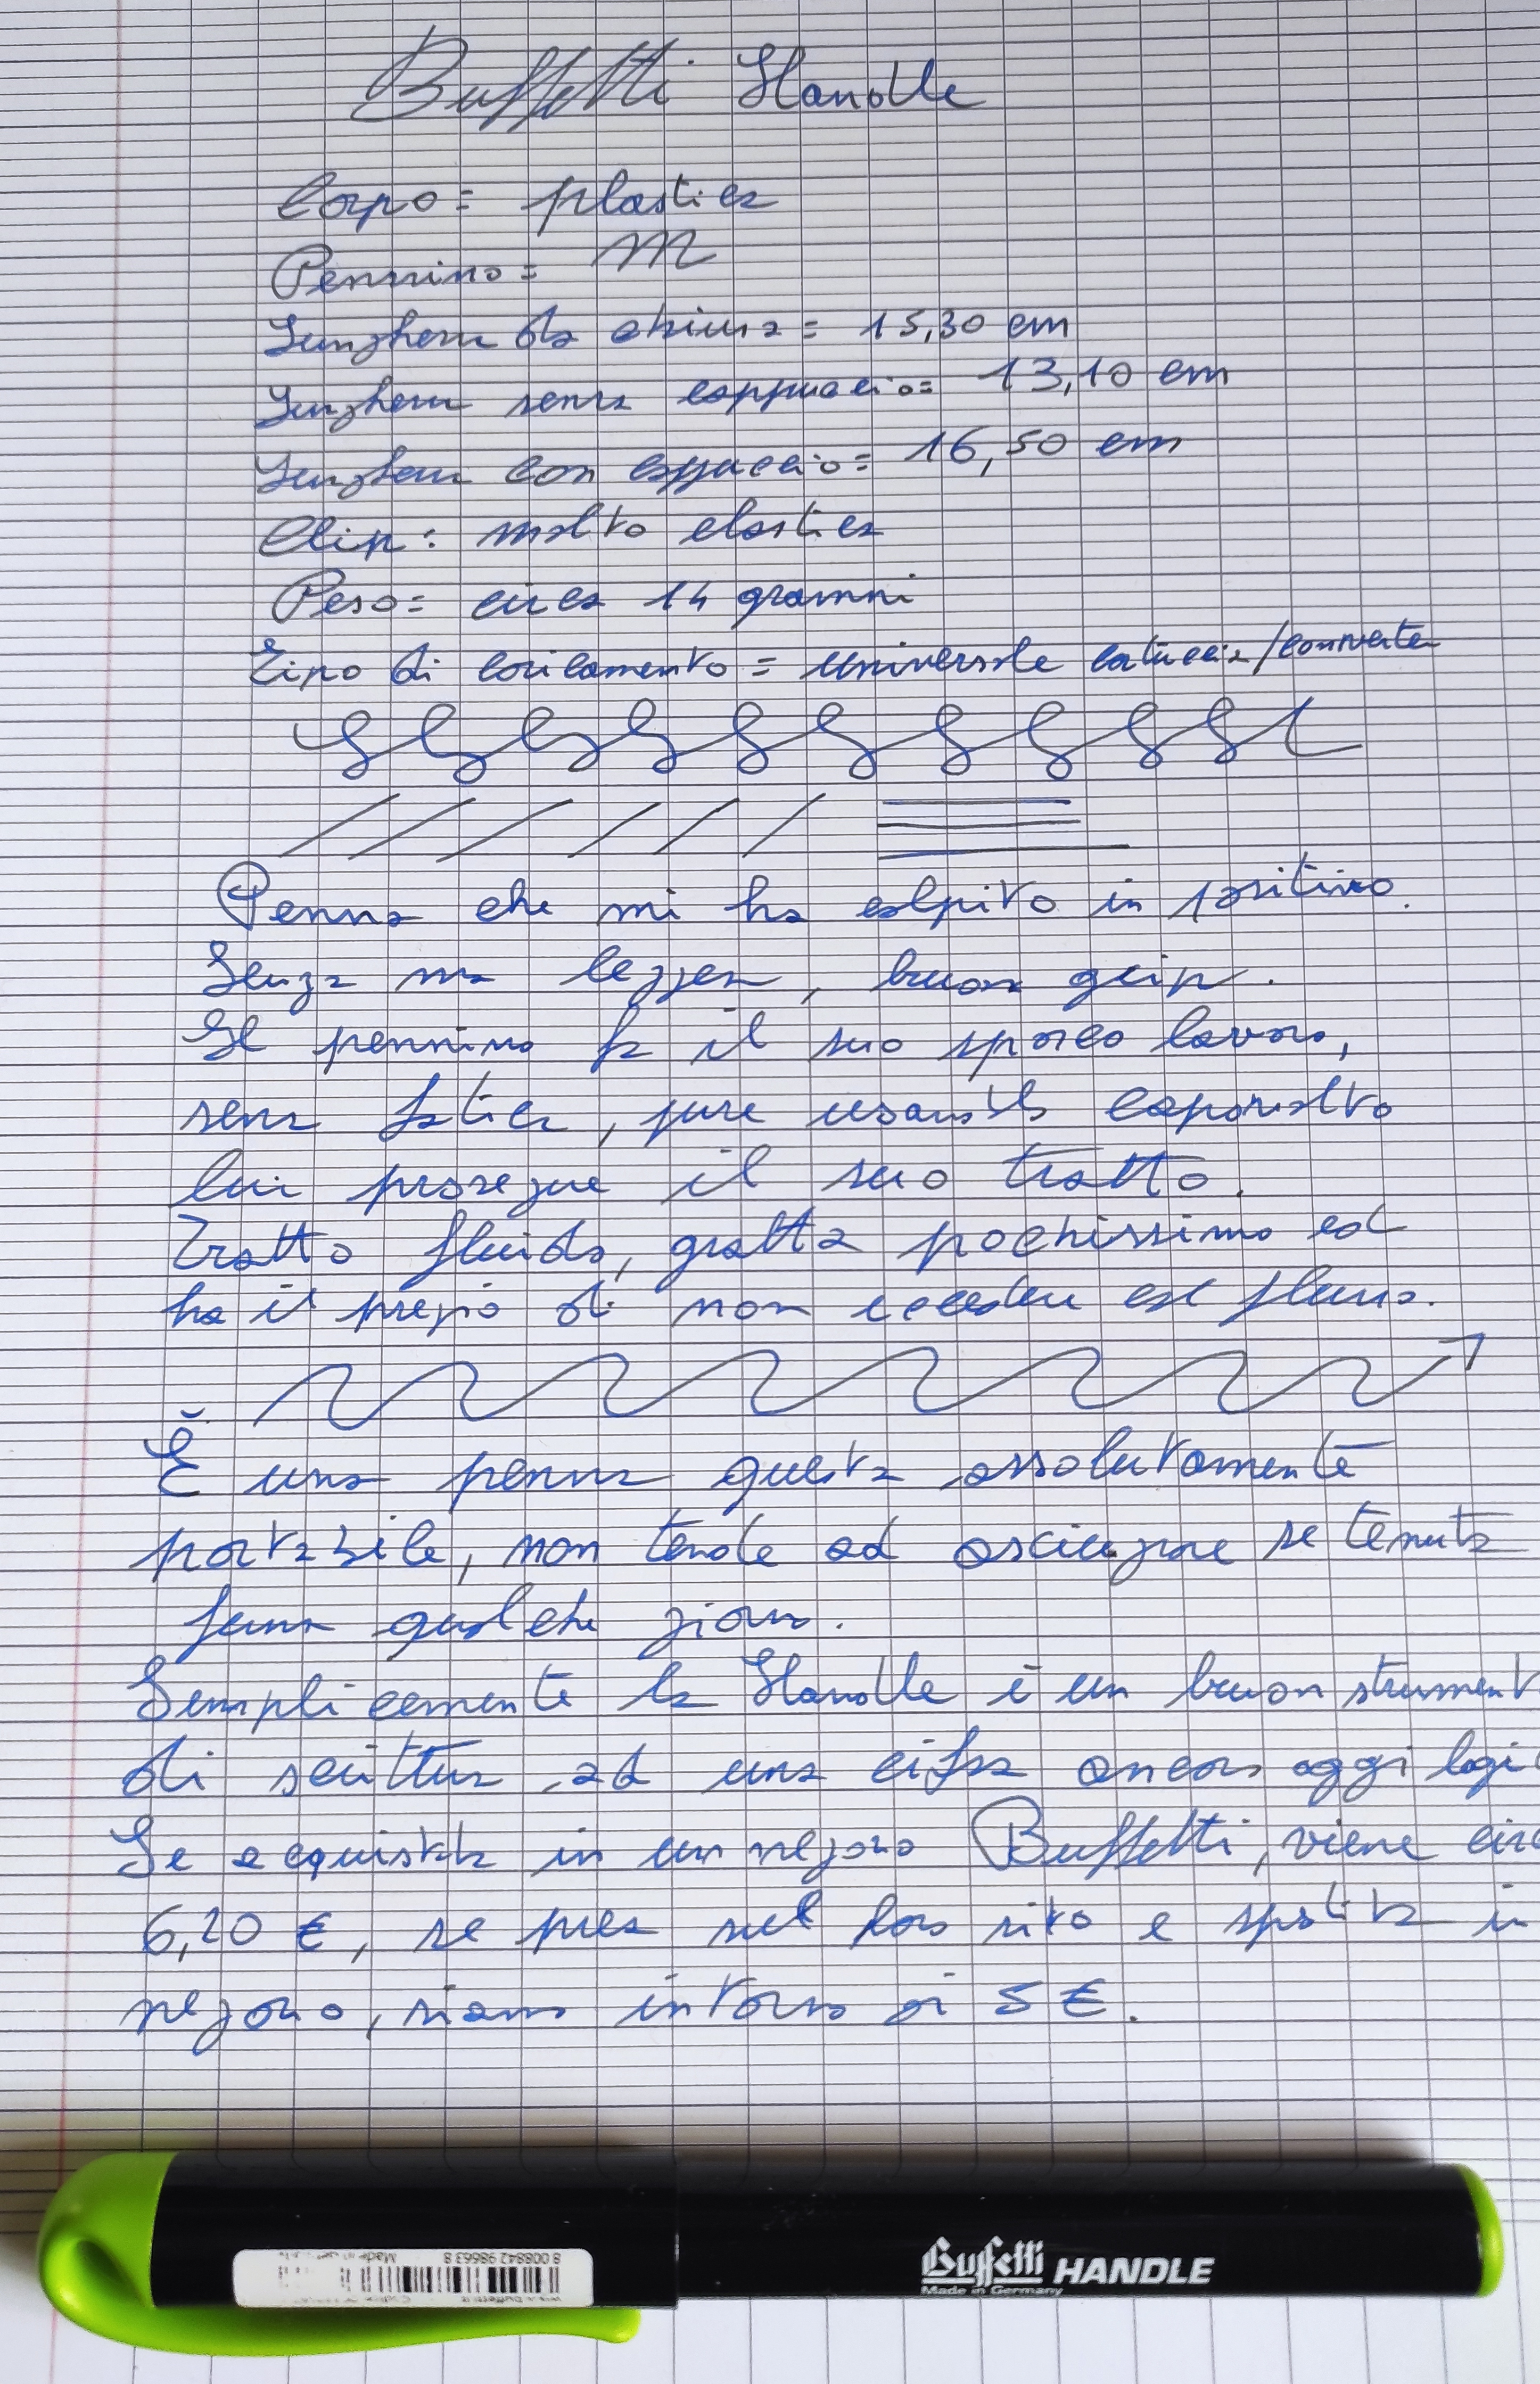 Buffetti Handle
Corpo= plastica
Pennino= M
Lunghezza da chiusa= 15,30 cm
Lunghezza senza cappuccio= 13,10 cm
Lunghezza con cappuccio= 16,50 cm
Clip: molto elastica
Peso= circa 14 grammi
Tipo di caricamento = universale cartuccia/converter
Penna che mi ha colpito in positivo.
Senza ma leggera, buon grip.
Il pennino fa il suo sporco lavoro,
senza fatica, pure usandolo capovolto
lui prosegue il suo tratto.
Tratto fluido, gratta pochissimo ed
ha il pregio di non eccedere col flusso.
È una penna questa assolutamente
portabile, non tende ad asciugare se tenuta
ferma qualche giorno.
Semplicemente la Handle è un buon strument
di scrittura ad una cifra ancora oggi logi
Se acquistata in un negozio Buffetti, viene circ
6,20 €, se presa sul loro sito e spedita in
negozio, siamo intorno ai 5 €.
8 008842 98663 8
Made in Germany
Buffetti HANDLE
Made in Germany